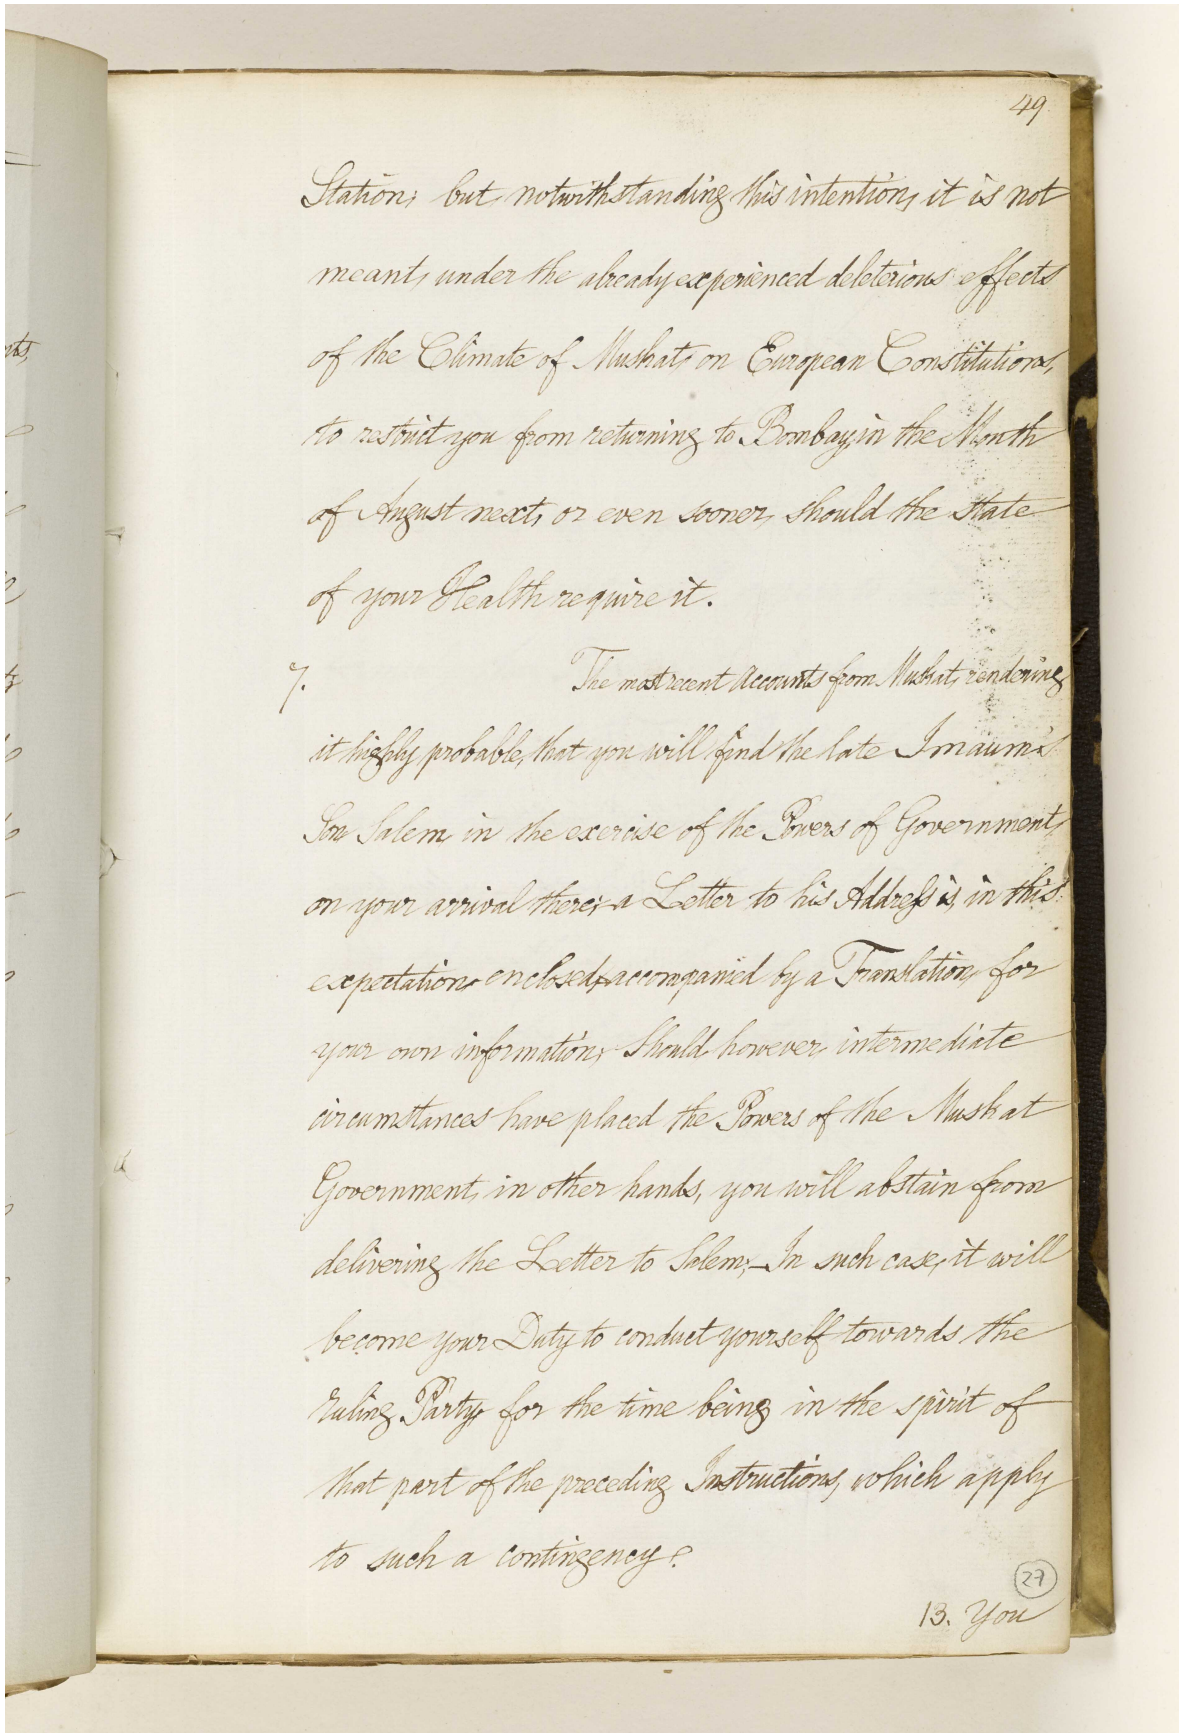 49
Station; but, notwithstanding this intention, it is not
meant, under the already experienced deleterious effects
of the Climate of Muskat, on European Constitutions,
to restrict you from returning to Bombay, in the Month
of August next, or even sooner, should the State
of your Health require it.
7. The most recent Accounts from Muskat, rendering
it highly probable, that you will find the late Imaum's
Son, Salem, in the exercise of the Powers of Government,
on your arrival there; a Letter to his Address is, in this
expectation, enclosed, accompanied by a Translation, for
your own information; Should however, intermediate
circumstances have placed the Powers of the Muskat
Government, in other hands, you will abstain from
delivering the Letter to Salem; – In such case, it will
become your Duty to conduct yourself towards the
ruling Party, for the time being in the spirit of
that part of the preceding Instructions, which apply
to such a contingency.
27
13. You